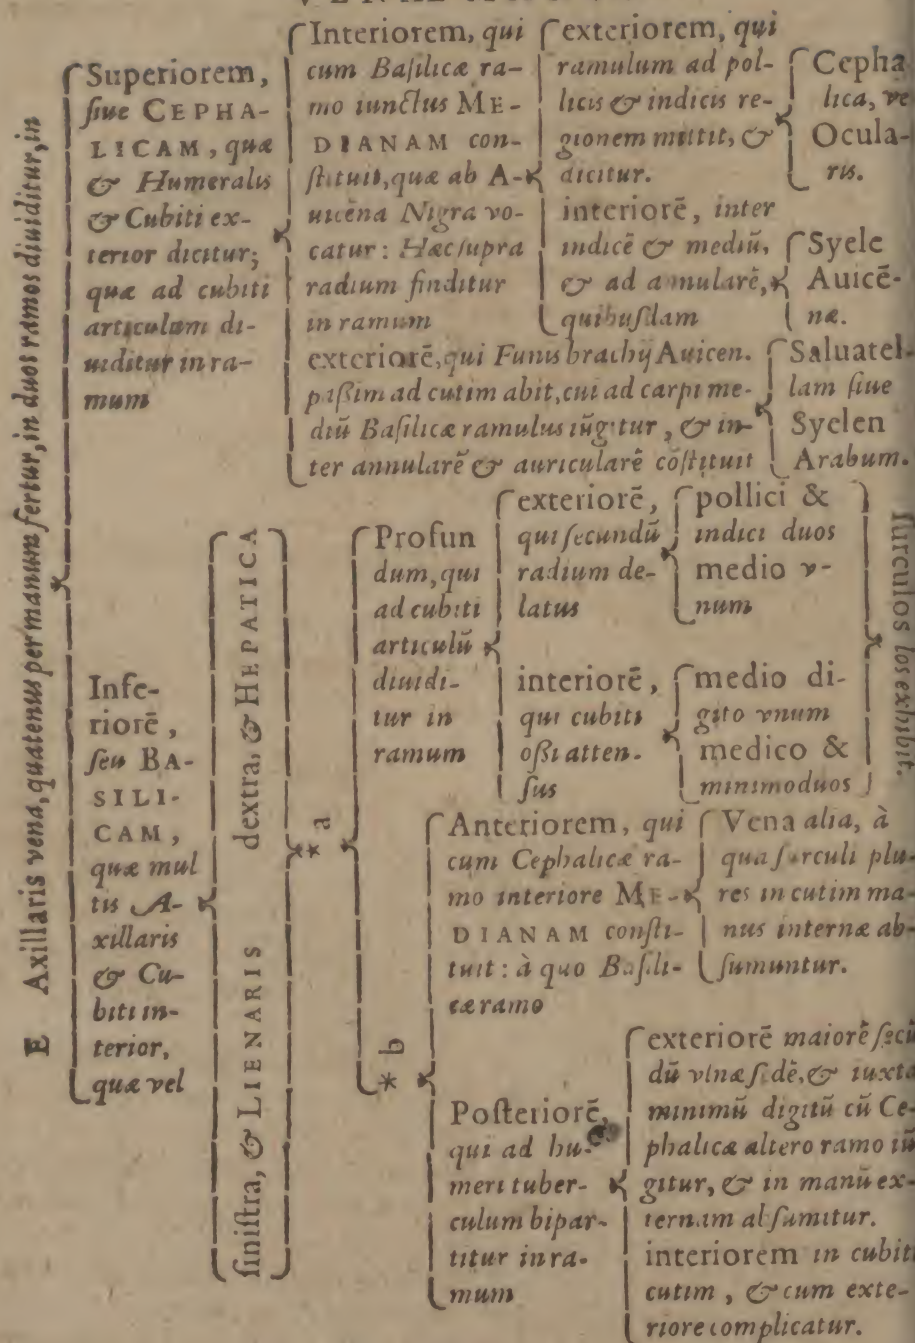 E Axillaris vena, quatenus per manum fertur, in duos ramos diuiditur, in
Superiorem,
siue CEPHA-
LICAM, quæ
& Humeralis
& Cubiti ex-
terior dicitur;
quæ ad cubiti
articulum di-
uiditur in ra-
mum
Interiorem, qui
cum Basilicæ ra-
mo iunctus ME-
DIANAM con-
stituit, quæ ab A-
uicena Nigra vo-
catur: Hæc supra
radium finditur
in ramum
exteriorem, qui
ramulum ad pol-
licis & indicis re-
gionem mittit, &
dicitur.
Cepha
lica, ve
Ocula-
ris.
interiorē, inter
indicē & mediū,
& ad annularē,
quibusdam
Syele
Auicē-
næ.
exteriorē, qui Funis brachij Auicen.
passim ad cutim abit, cui ad carpi me-
diū Basilicæ ramulus iūgitur, & in-
ter annularē & auricularē cōstituit
Saluatel-
lam siue
Syelen
Arabum.
Infe-
riorē,
seu BA-
SILI-
CAM,
quæ mul
tis A-
xillaris
& Cu-
biti in-
terior,
quæ vel
dextra, & HEPATICA
sinistra, & LIENARIS
* a
* b
Profun
dum, qui
ad cubiti
articulū
diuidi-
tur in
ramum
exteriorē,
qui secundū
radium de-
latus
pollici &
indici duos
medio v-
num
interiorē,
qui cubiti
ossi atten-
sus
medio di-
gito vnum
medico &
minimo duos
surculos los exhibit.
Anteriorem, qui
cum Cephalicæ ra-
mo interiore ME-
DIANAM consti-
tuit: à quo Basili-
cæ ramo
Vena alia, à
qua surculi plu-
res in cutim ma-
nus internæ ab-
sumuntur.
Posteriorē,
qui ad hu-
meri tuber-
culum bipar-
titur in ra-
mum
exteriorē maiorē secū
dū vlnæ sidē, & iuxta
minimū digitū cū Ce-
phalicæ altero ramo iū
gitur, & in manū ex-
ternam absumitur.
interiorem in cubiti
cutim, & cum exte-
riore complicatur.